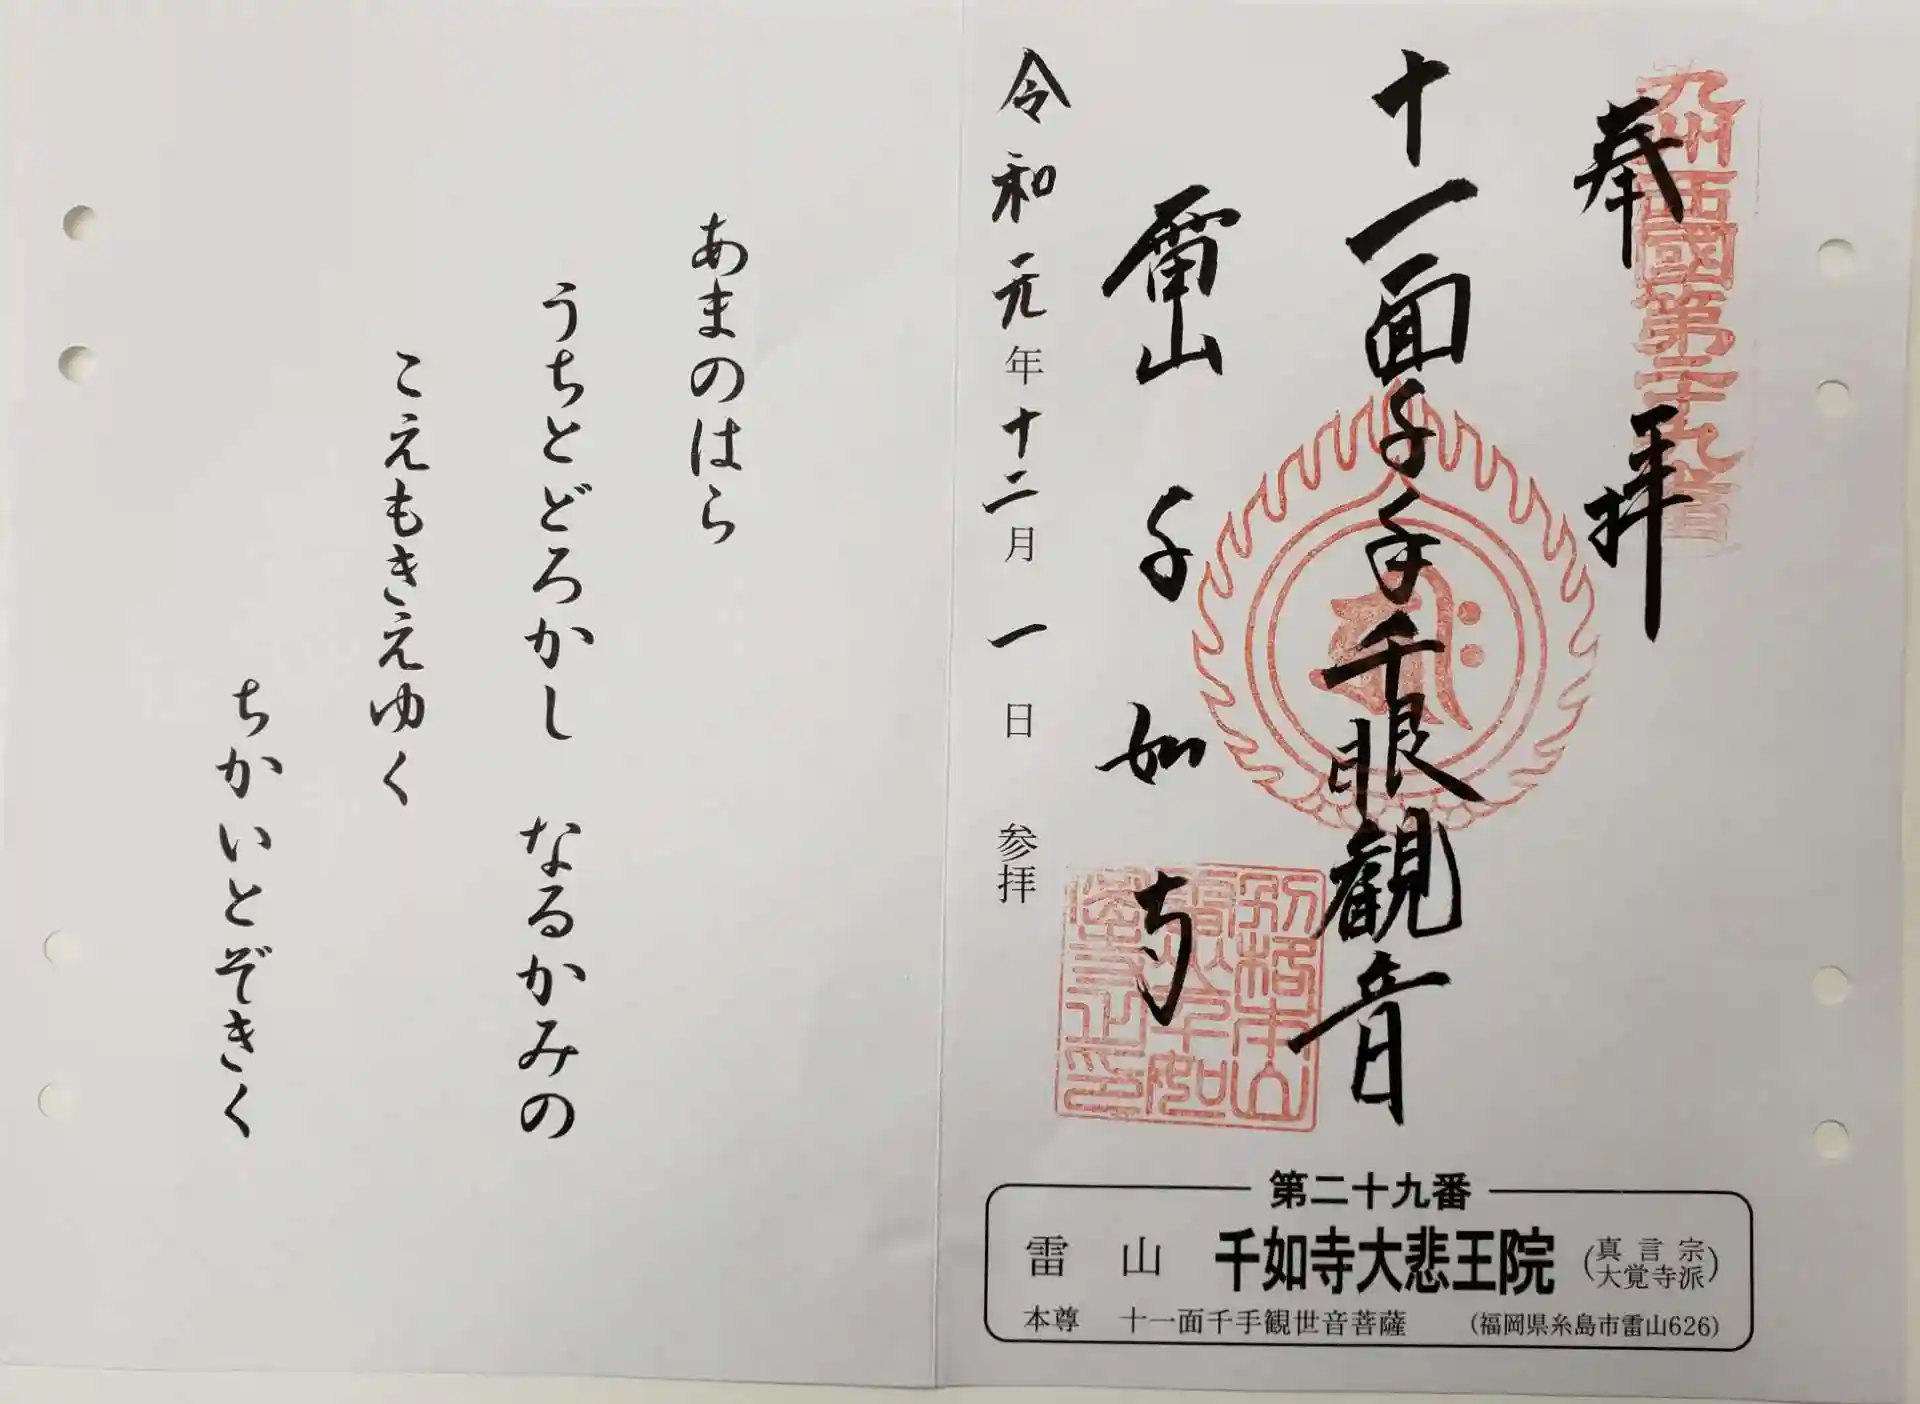 九州西國第二十九番
奉拝
十一面千手千眼観音
雷山千如寺
令和元年十二月一日 参拝
第二十九番
雷山 千如寺大悲王院 (真言宗大覚寺派)
本尊 十一面千手観世音菩薩 (福岡県糸島市雷山626)
あまのはら
うちとどろかし なるかみの
こえもきえゆく
ちかいとぞきく